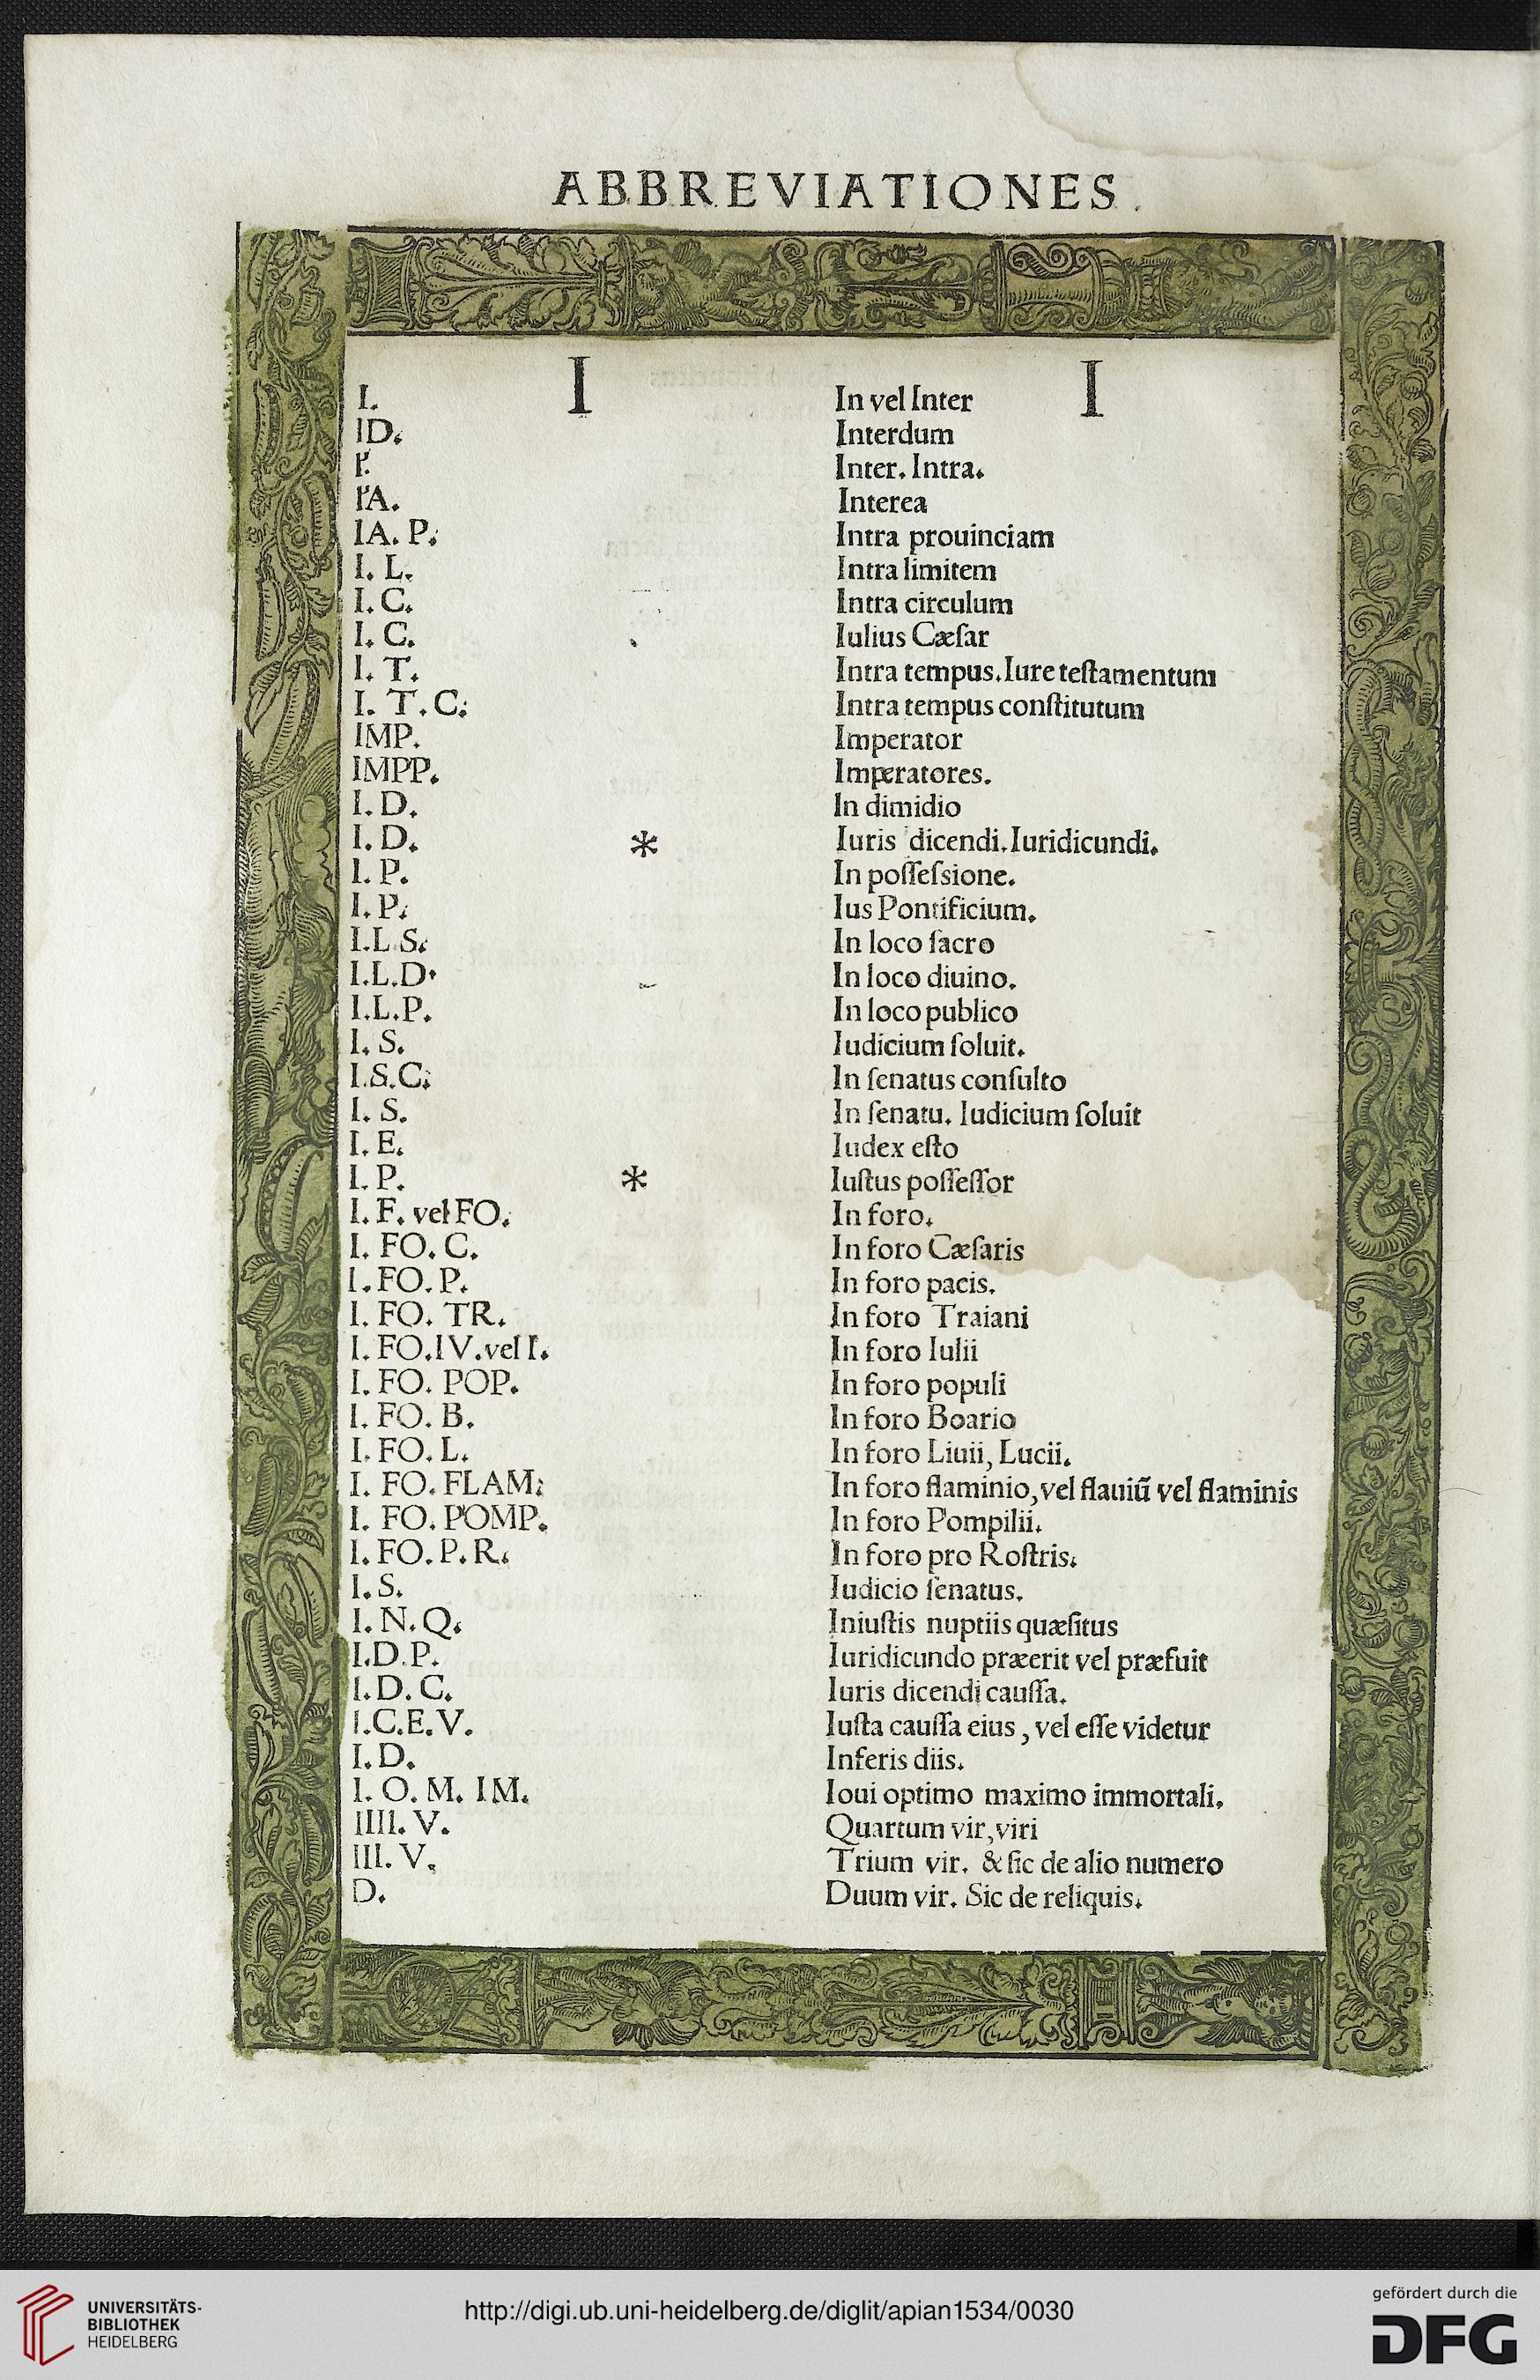 ABBREVIATIONES.
I I
I. In vel Inter
ID. Interdum
I'. Inter. Intra.
I'A. Interea
IA. P. Intra prouinciam
I. L. Intra limitem
I. C. Intra circulum
I. C. Iulius Cæſar
I. T. Intra tempus. Iure teſtamentum
I. T. C. Intra tempus conſtitutum
IMP. Imperator
IMPP. Imperatores.
I. D. In dimidio
I. D. * Iuris dicendi. Iuridicundi.
I. P. In poſſeſsione.
I. P. Ius Pontificium.
I.L.S. In loco ſacro
I.L.D. In loco diuino.
I.L.P. In loco publico
I. S. Iudicium ſoluit.
I.S.C. In ſenatus conſulto
I. S. In ſenatu. Iudicium ſoluit
I. E. Iudex eſto
I. P. * Iuſtus poſſeſſor
I. F. vel FO. In foro.
I. FO. C. In foro Cæſaris
I. FO. P. In foro pacis.
I. FO. TR. In foro Traiani
I. FO. IV. vel I. In foro Iulii
I. FO. POP. In foro populi
I. FO. B. In foro Boario
I. FO. L. In foro Liuii, Lucii.
I. FO. FLAM. In foro flaminio, vel flauiū vel flaminis
I. FO. POMP. In foro Pompilii.
I. FO. P. R. In foro pro Roſtris.
I. S. Iudicio ſenatus.
I. N. Q. Iniuſtis nuptiis quæſitus
I.D.P. Iuridicundo præerit vel præfuit
I. D. C. Iuris dicendi cauſſa.
I.C.E.V. Iuſta cauſſa eius, vel eſſe videtur
I. D. Inferis diis.
I. O. M. IM. Ioui optimo maximo immortali.
IIII. V. Quartum vir, viri
III. V. Trium vir. & ſic de alio numero
D. Duum vir. Sic de reliquis.
UNIVERSITÄTS-
BIBLIOTHEK
HEIDELBERG
http://digi.ub.uni-heidelberg.de/diglit/apian1534/0030
gefördert durch die
DFG